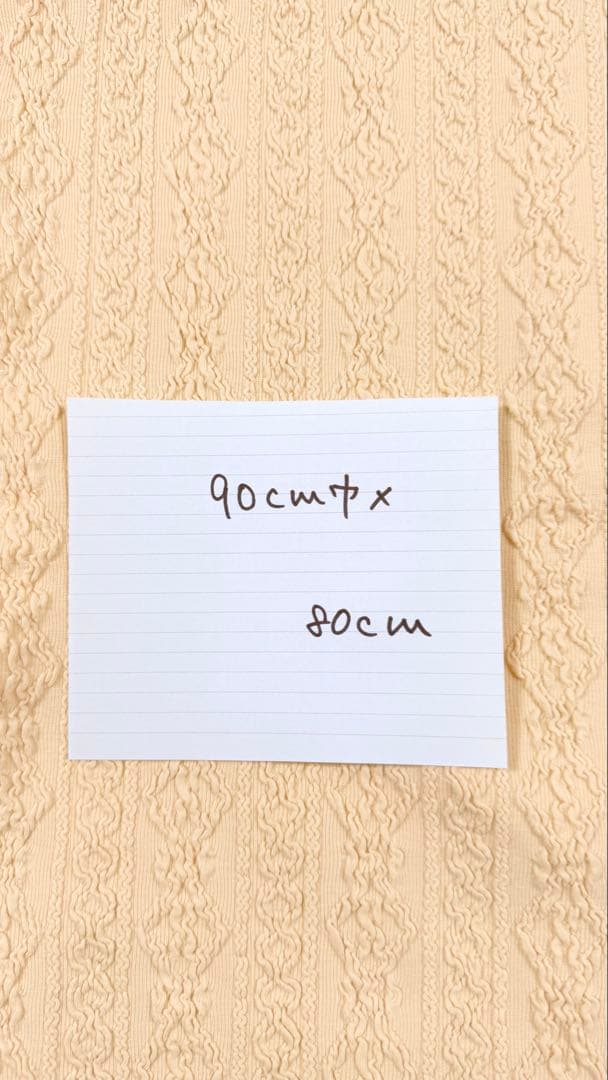 90cm巾×
80cm